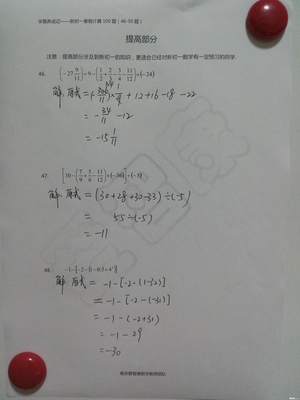 学霸养成记——新初一暑假计算 100 题(46-50 题)
提高部分
注意:提高部分涉及到新初一的知识,更适合已经对新初一数学有一定预习的同学.
46. (-27 9/11)÷9-(1/2+2/3-3/4-11/12)×(-24)
解:原式=(-306/11)×1/9+12+16-18-22
=-34/11-12
=-15 1/11
47. [30-(7/9+5/6-11/12)×(-36)]÷(-5)
解:原式=(30+28+30-33)÷(-5)
= 55÷(-5)
=-11
48.
解:原式=-1-[-2-(1-32)]
=-1-[-2-(-31)]
=-1-(-2+31)
=-1-29
=-30